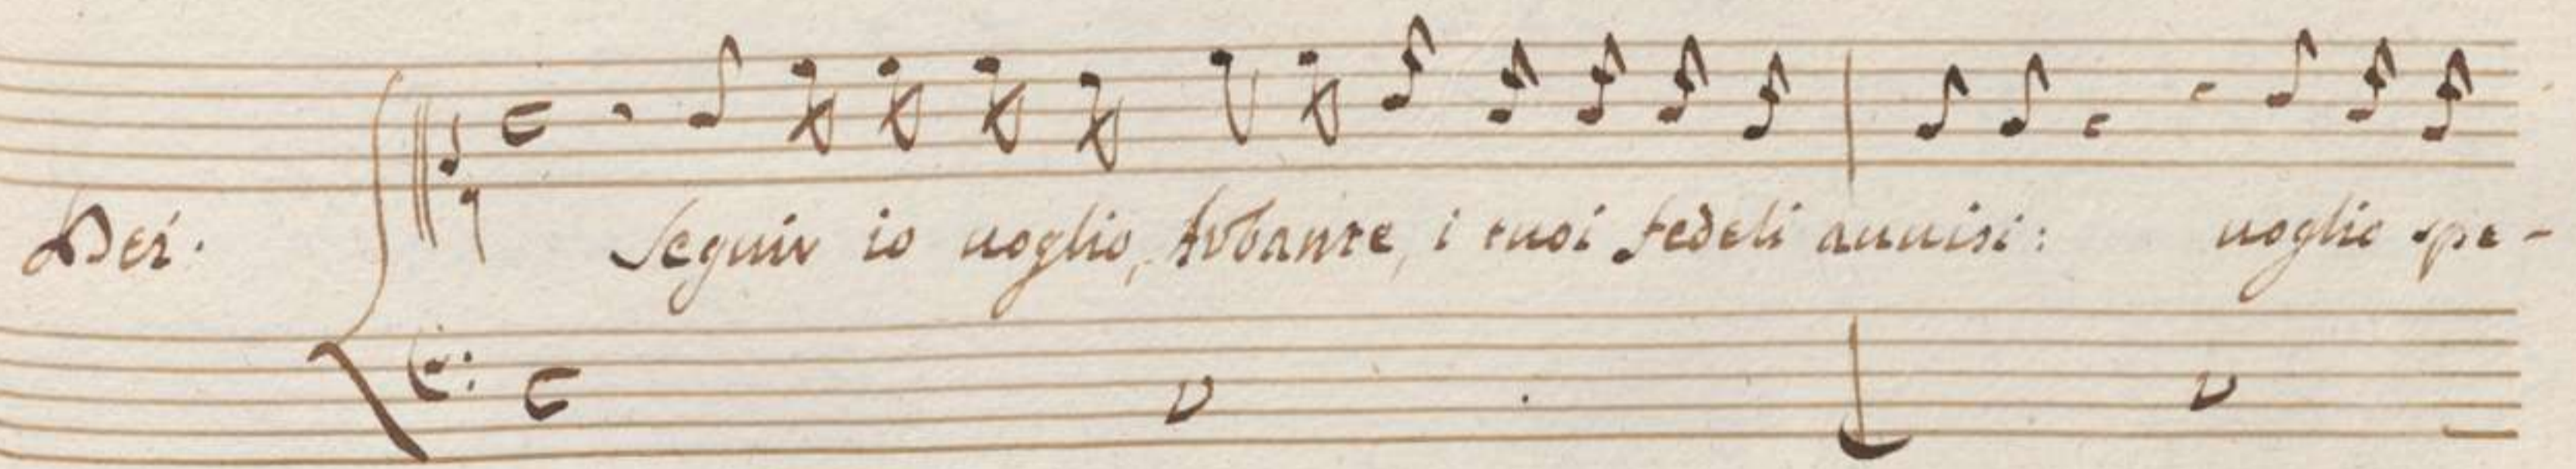 Dei. Seguir io uoglio, Arbante, i tuoi fedeli auuisi: uoglio spe-